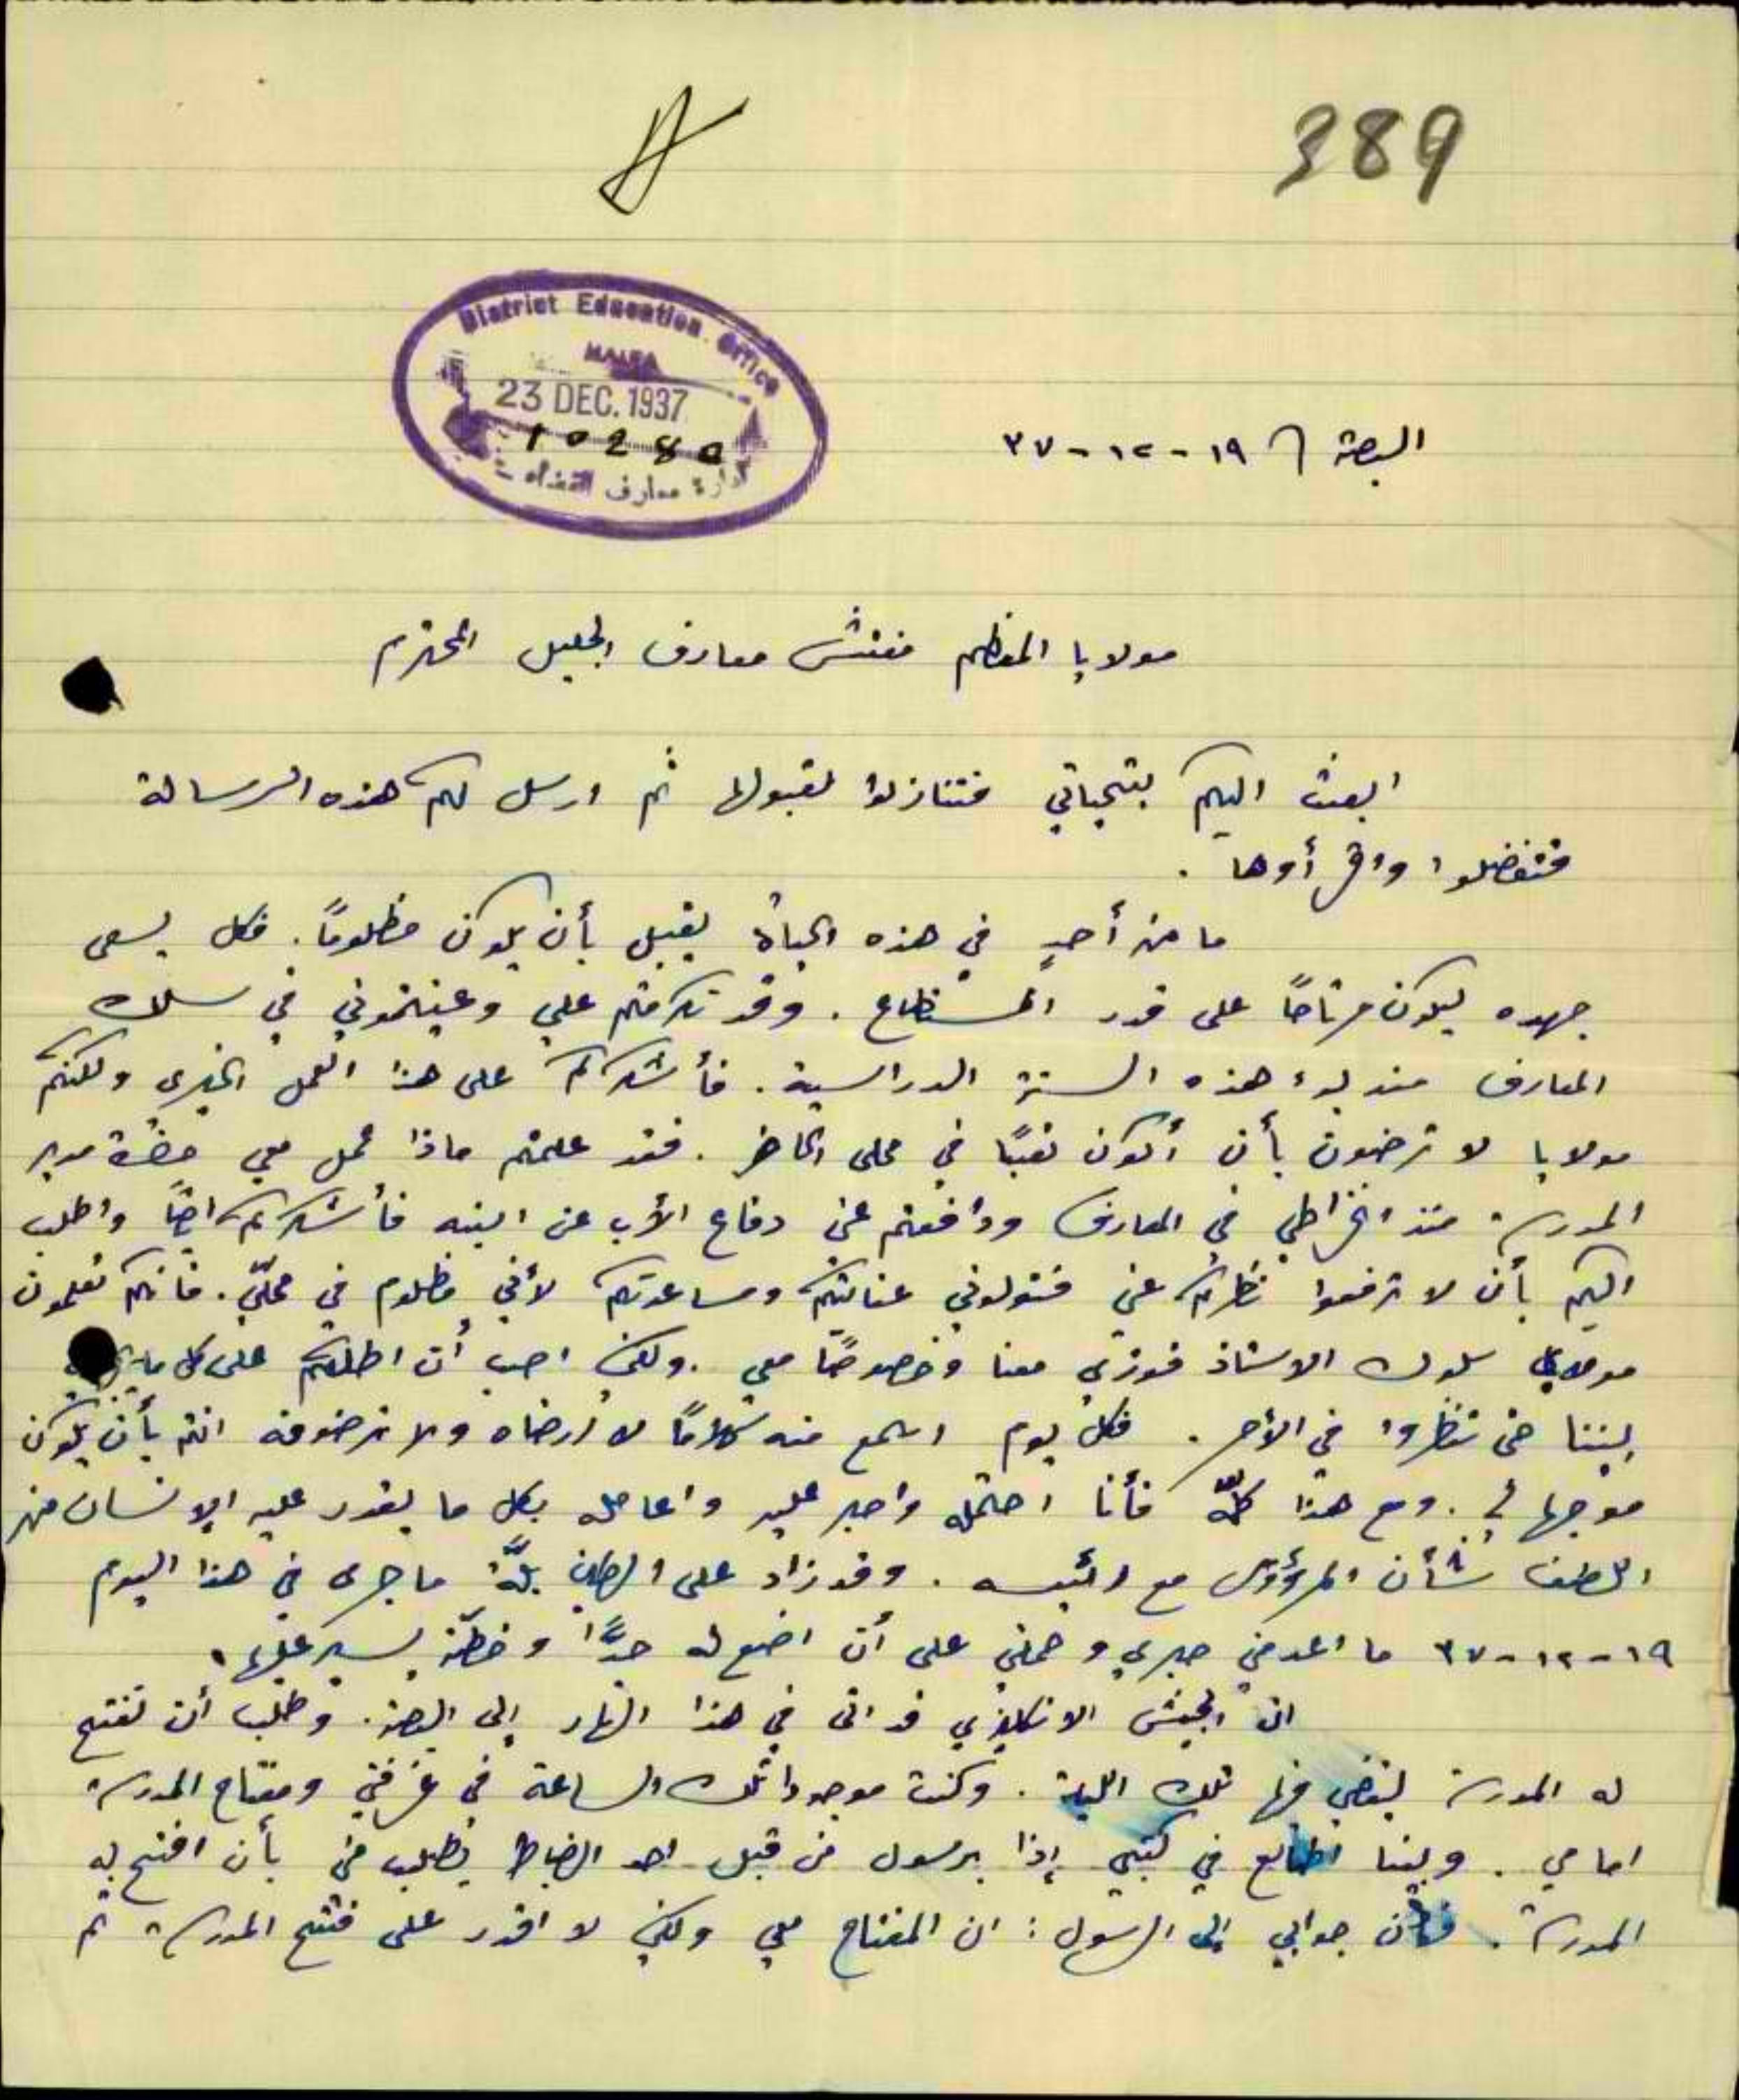 389
District Education Office
HAIFA
23 DEC. 1937
10280
إدارة معارف القضاء
البصة ١٩-١٢-٣٧
مولايا المعظم مفتش معارف الجليل المحترم
ابعث اليكم بتحياتي فتنازلوا لقبولها ثم ارسل لكم هذه الرسالة
فتفضلوا واقرأوها .
ما من أحدٍ في هذه الحياة يقبل بأن يكون مظلومًا. فكل يسعى
جهده ليكون مرتاحًا على قدر المستطاع . وقد تكرمتم علي وعينتموني في سلك
المعارف منذ بدء هذه السنة الدراسية . فأشكركم على هذا العمل الخيري ولكنكم
مولايا لا ترضون بأن أكون تعبًا في محلي الحاضر . فقد علمتم ماذا عمل معي حضرة مدير
المدرسة منذ انخراطي في المعارف ودافعتم عني دفاع الأب عن ابنه فأشكركم ايضًا واطلب
اليكم بأن لا ترفعوا نظركم عني فتولوني عنايتكم ومساعدتكم لأني مظلوم في محلّي . فانكم تعلمون
مولاي سلوك الاستاذ فوزي معنا وخصوصًا معي . ولكني احب أن اطلعكم على كل ما
بيننا حتى تنظروا في الأمر . فكل يوم اسمع منه كلامًا لا أرضاه ولا ترضونه انتم بأن يكون
موجها لي . ومع هذا كلّه فأنا احتمله واصبر عليه واعامله بكل ما يقدر عليه الإنسان من
اللطف شأن المرؤوس مع رئيسه . وقد زاد على الطين بلّة ما جرى في هذا اليوم
١٩-١٢-٣٧ ما اعدمني صبري وحملني على أن اضع له حدًّا وخطّة يسير عليها .
ان الجيش الانكليزي قد اتى في هذا النهار إلى البصة . وطلب أن تفتح
له المدرسة ليقضي فيها تلك الليلة . وكنت موجودا تلك الساعة في غرفتي ومفتاح المدرسة
امامي . وبينا اطالع في كتبي إذا برسول من قبل احد الضباط يطلب مني بأن افتح له
المدرسة . فكان جوابي إلى الرسول : ان المفتاح معي ولكني لا اقدر على فتح المدرسة ثم